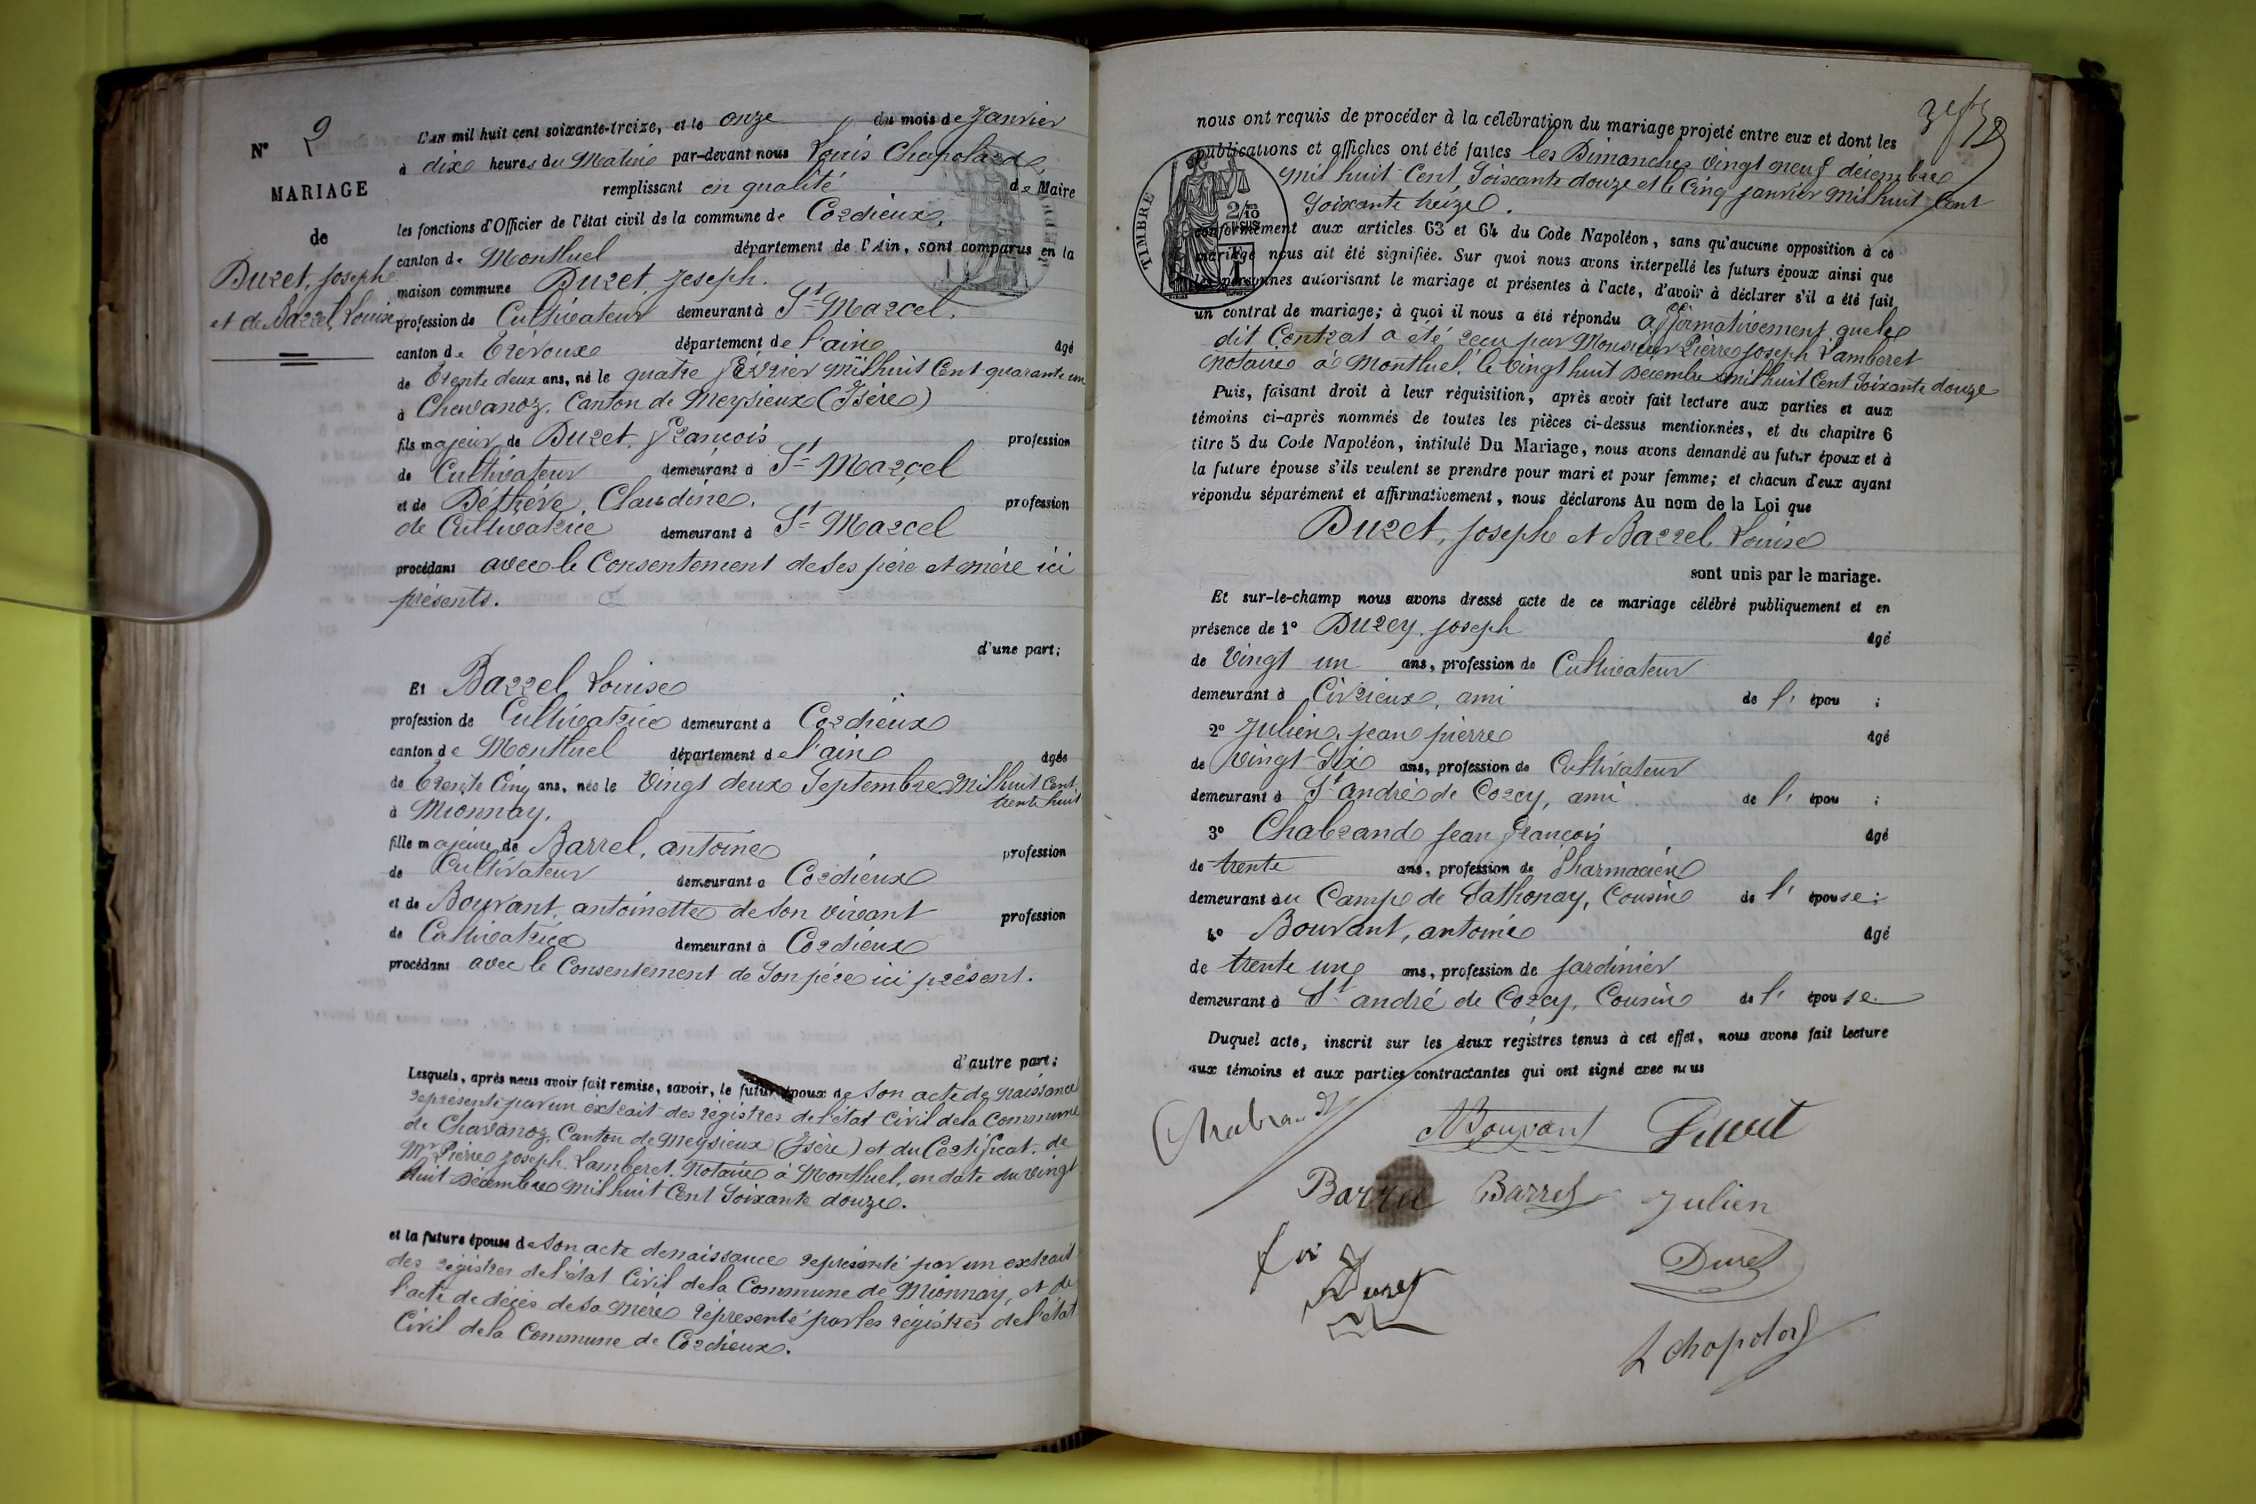 N° 2
MARIAGE
de
Duret, Joseph
et de Barrel, Louise
L'AN mil huit cent soixante-treize, et le onze du mois de Janvier
à dix heures du Matin par-devant nous Louis Chapolard,
remplissant en qualité de Maire
les fonctions d'Officier de l'état civil de la commune de Cordieux,
canton de Montluel département de l'Ain, sont comparus en la
maison commune Duret, Joseph.
profession de Cultivateur demeurant à St Marcel.
canton de Trévoux département de l'ain âgé
de trente deux ans, né le quatre février mil huit Cent quarante un
à Chavanoz, Canton de Meysieux (Isère)
fils majeur de Duret, François profession
de Cultivateur demeurant à St Marcel
et de Claudine. profession
de Cultivatrice demeurant à St Marcel
procédant avec le Consentement de ses père et mère ici
présents.
d'une part;
Et Barrel Louise
profession de Cultivatrice demeurant à Cordieux
canton de Montluel département de l'ain âgée
de trente Cinq ans, née le vingt deux Septembre Mil huit Cent
trente huit
à Mionnay.
fille majeure de Barrel, antoine profession
de Cultivateur demeurant à Cordieux
et de Bouvant, antoinette de son vivant profession
de Cultivatrice demeurant à Cordieux
procédant avec le Consentement de Son père ici présent.
d'autre part;
Lesquels, après nous avoir fait remise, savoir, le futur époux de Son acte de naissance
représenté par un extrait des régistres de l'état Civil de la Commune
de Chavanoz, Canton de Meysieux (Isère) et du Certificat de
Mr Pierre Joseph Lamberet, Notaire à Montluel, en date du vingt
huit Décembre mil huit Cent Soixante douze.
et la future épouse de Son acte de naissance représenté par un extrait
des régistres de l'état Civil de la Commune de Mionnay, et de
l'acte de décès de sa Mère représenté par les régistres de l'état
Civil de la Commune de Cordieux.
nous ont requis de procéder à la célébration du mariage projeté entre eux et dont les
publications et affiches ont été faites les Dimanches vingt neuf décembre
mil huit Cent, Soixante douze et le Cinq janvier Mil huit Cent
Soixante treize.
TIMBRE
2/10
conformément aux articles 63 et 64 du Code Napoléon, sans qu'aucune opposition à ce
mariage nous ait été signifiée. Sur quoi nous avons interpellé les futurs époux ainsi que
les personnes autorisant le mariage et présentes à l'acte, d'avoir à déclarer s'il a été fait
un contrat de mariage; à quoi il nous a été répondu affirmativement que le
dit Contrat a été reçu par Monsieur Pierre Joseph Lamberet
Notaire à Montluel, le vingt huit Décembre mil huit Cent Soixante douze
Puis, faisant droit à leur réquisition, après avoir fait lecture aux parties et aux
témoins ci-après nommés de toutes les pièces ci-dessus mentionnées, et du chapitre 6
titre 5 du Code Napoléon, intitulé Du Mariage, nous avons demandé au futur époux et à
la future épouse s'ils veulent se prendre pour mari et pour femme; et chacun d'eux ayant
répondu séparément et affirmativement, nous déclarons Au nom de la Loi que
Duret, Joseph et Barrel Louise
sont unis par le mariage.
Et sur-le-champ nous avons dressé acte de ce mariage célébré publiquement et en
présence de 1° Durey, Joseph âgé
de Vingt un ans, profession de Cultivateur
demeurant à Civrieux, ami de l' épou ;
2° Julien, Jean pierre âgé
de Vingt Six ans, profession de Cultivateur
demeurant à St andré de Corcy, ami de l' épou ;
3° Chabrand Jean François âgé
de trente ans, profession de Pharmacien
demeurant au Camp de Sathonay, Cousin de l' épouse;
4° Bouvant, antoine âgé
de trente un ans, profession de Jardinier
demeurant à St andré de Corcy, Cousin de l' épouse
Duquel acte, inscrit sur les deux registres tenus à cet effet, nous avons fait lecture
aux témoins et aux parties contractantes qui ont signé avec nous
Chabrand Bouvant
Barrel Julien
Duret
Duret
L Chapolard